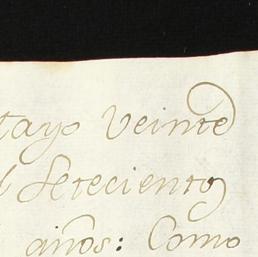 tayo veinte
l Setecientos
años: Como